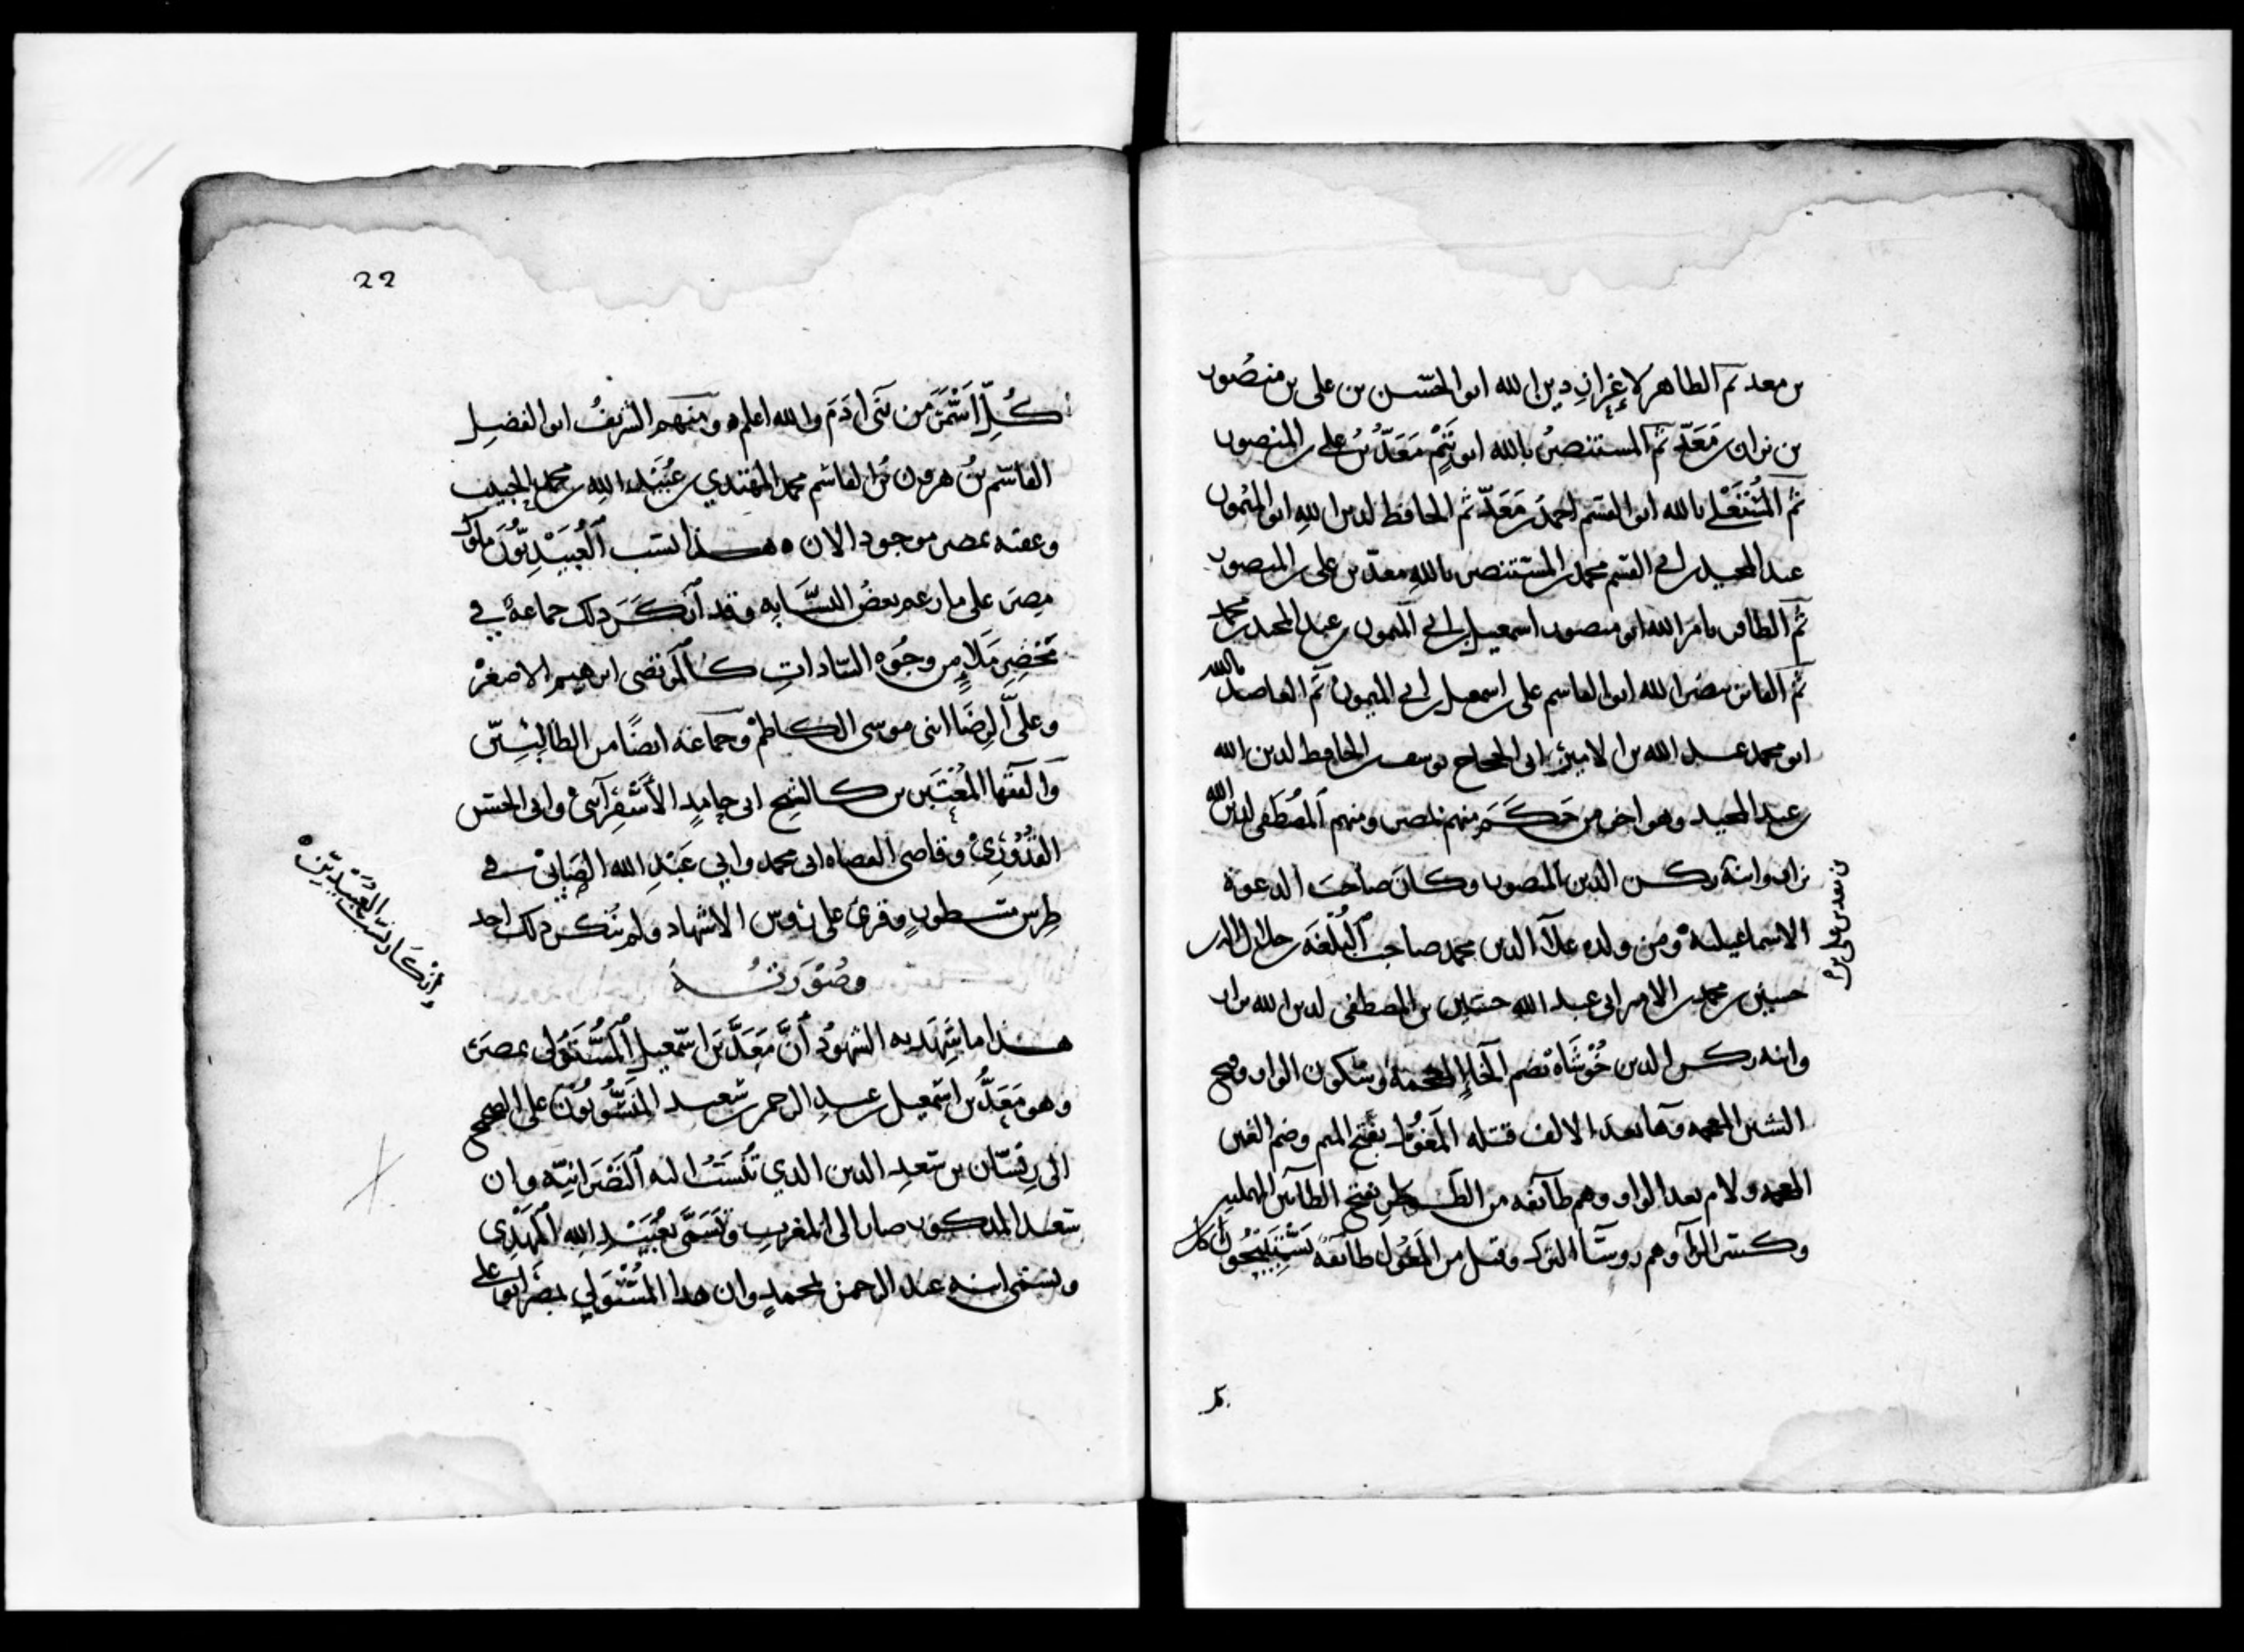 بن معد ثم الظاهر لإعزاز دين الله ابو الحسن بن على بن منصور
بن نزار بن مَعَدّ ثم المستنصرُ بالله ابو تميم مَعَدّ بن على بن المنصور
ثم المُسْتَعْلِي بالله ابو القسم احمد بن مَعَدّ ثم الحافظ لدين اللهِ ابو الميمون
عبد المجيد بن ابي القسم محمد بن المستنصر باللهِ معدّ بن على بن المنصور
ثم الظافر بامر الله ابو منصور اسمعيل بن ابي الميمون بن عبد المجيد بن محمد
ثم الفائز بنصر الله ابو القاسم على بن اسمعيل بن ابي الميمون ثم العاضد بالله
ابو محمد عبد الله بن الامير ابى الحجاج يوسف بن الحافظ لدين الله
بن عبد المجيد وهو اخر من حَكَمَ منهم بمصر ومنهم المُصْطَفى لدين الله
نزار وابنه ركن الدين المنصور وكان صاحبَ الدعوة
بن معد بن على بن
الاسماعيلية ومن ولده علآ الدين محمد صاحب البُلْغَة جلال الدين
حسين بن محمد بن الامير ابى عبد الله حسين بن المصطفى لدين الله نزار
وابنه ركن الدين خُوْشَاهْ بضم الخاء المعجمة وسكون الواو وفتح
الشين المعجمه وها بعد الالف قتله المَغُوْل بفتح الميم وضم الغين
المعجمه ولام بعد الواو وهم طائفه من الططر بفتح الطائين المهملتين
وكسر الرا وهم روسَآ الترك وقيل من المَغُول طائفةً يَسْتَبِيحُونَ اكل
22
كُلِّ اسْمَرَ من بَنى ادَمَ والله اعلم ه ومنهم الشريفُ ابو الفضل
القاسم بنُ هرون بن القاسم محمد المهتدي بن عُبَيْد الله بن محمد الحبيب
وعقبه بمصر موجود الان ه هذا نسب العُبَيْدِيُّونَ ملوك
مِصرَ على ما زعم بعضُ النسَّابه وقد انكَرَ ذلك جماعةٌ في
مَحْضِرِ مَلاٍ من وجُوْه السّاداتِ كالمرتضى ابرهيم الاصغرْ
وعلى الرِضَا ابنى موسى الكاظمْ وجماعَه ايضًا من الطالبيّين
وَالفقهآ المُعْتَبَرين كالشيخ ابى حامِدٍ الأَسْفِرَآنىْ وابى الحسَن
القُدُوْرِيْ وقاضى القضاه ابى محمد وابي عَبْدِ الله الصّيابىْ في
طِرسٍ مسطورٍ وقرئ على رُوس الاشهاد ولم يُنكر ذلك احد
وصُوْرَتُهُ
وانكار نسب العُبَيْدِيّيْن ه
هذا ما شَهِدَ به الشهُودُ أنَّ مَعَدَّ بن اسْمعيل المُسْتَوْلى بمصر
وهو مَعَدُّ بن اسمعيل بن عبدِ الرحمن بن سعيد المنسُوبُوْن على الصحيح
الى ديْصَان بن سَعدٍ الدين الذي تُنْسَبُ اليه النَصْرَانِيّه وان
سَعيد المذكور صار الى المغربِ وتسَمَّى بعُبَيْدِ الله المَهْدِى
وتسَمى ابنه عبد الرحمن بمحمدٍ وان هذا المُسْتَوْلي بمصر ابو على